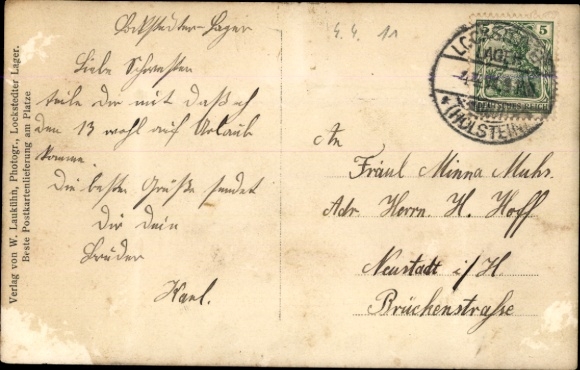 Lockstedter-Lager
4.4. 11
Liebe Schwester
teile dir mit daß ich
den 13 wohl auf Urlaub
komme.
Die besten Grüße sendet
Dir Dein
Bruder
Karl.
Verlag von W. Laukühn, Photogr., Lockstedter Lager.
Beste Postkartenlieferung am Platze
5
LOCKSTEDTER
LAGER
DEUTSCHES REICH
* (HOLSTEIN)
An
Fräul Minna Muhs.
Adr. Herrn. H. Hoff
Neustadt i/H
Brückenstraße